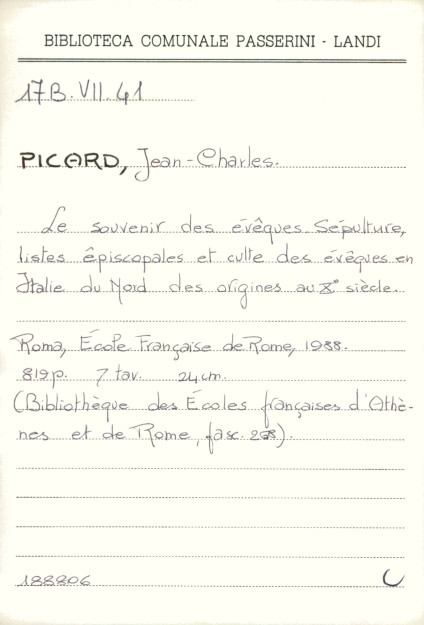 BIBLIOTECA COMUNALE PASSERINI - LANDI
17B.VII.41
PICARD, Jean-Charles.
Le souvenir des évêques. Sépulture,
listes épiscopales et culte des évêques en
Italie du Nord des origines au Xe siècle.
Roma, École Française de Rome, 1988.
819p. 7 tav. 24cm.
(Bibliothèque des Écoles françaises d'Athè-
nes et de Rome, fasc. 268).
188806
C